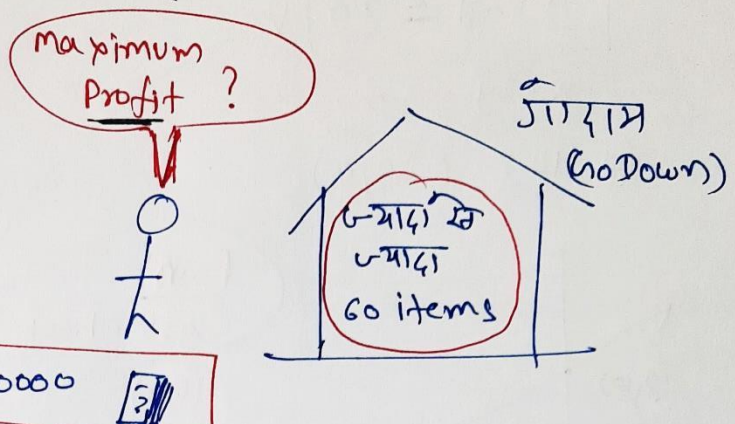 Maximum
Profit ?
गोदाम
(GoDown)
ज्यादा से
ज्यादा
60 items
0000
?